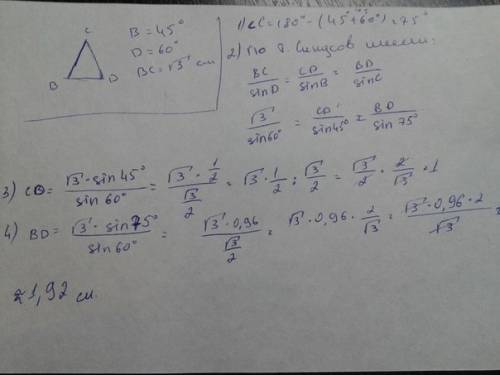 C
B
D
B = 45°
D = 60°
BC = √3 см
1) ∠C = 180° - (45° + 60°) = 75°
2) По т. Синусов имеем:
BC/sinD = CD/sinB = BD/sinC
√3/sin60° = CD/sin45° = BD/sin75°
3) CD = √3·sin45°/sin60° = (√3·1/2)/(√3/2) = √3·1/2 : √3/2 = √3/2·2/√3 = 1
4) BD = √3·sin75°/sin60° = (√3·0,96)/(√3/2) = √3·0,96·2/√3 = (√3·0,96·2)/√3 =
≈ 1,92 см.